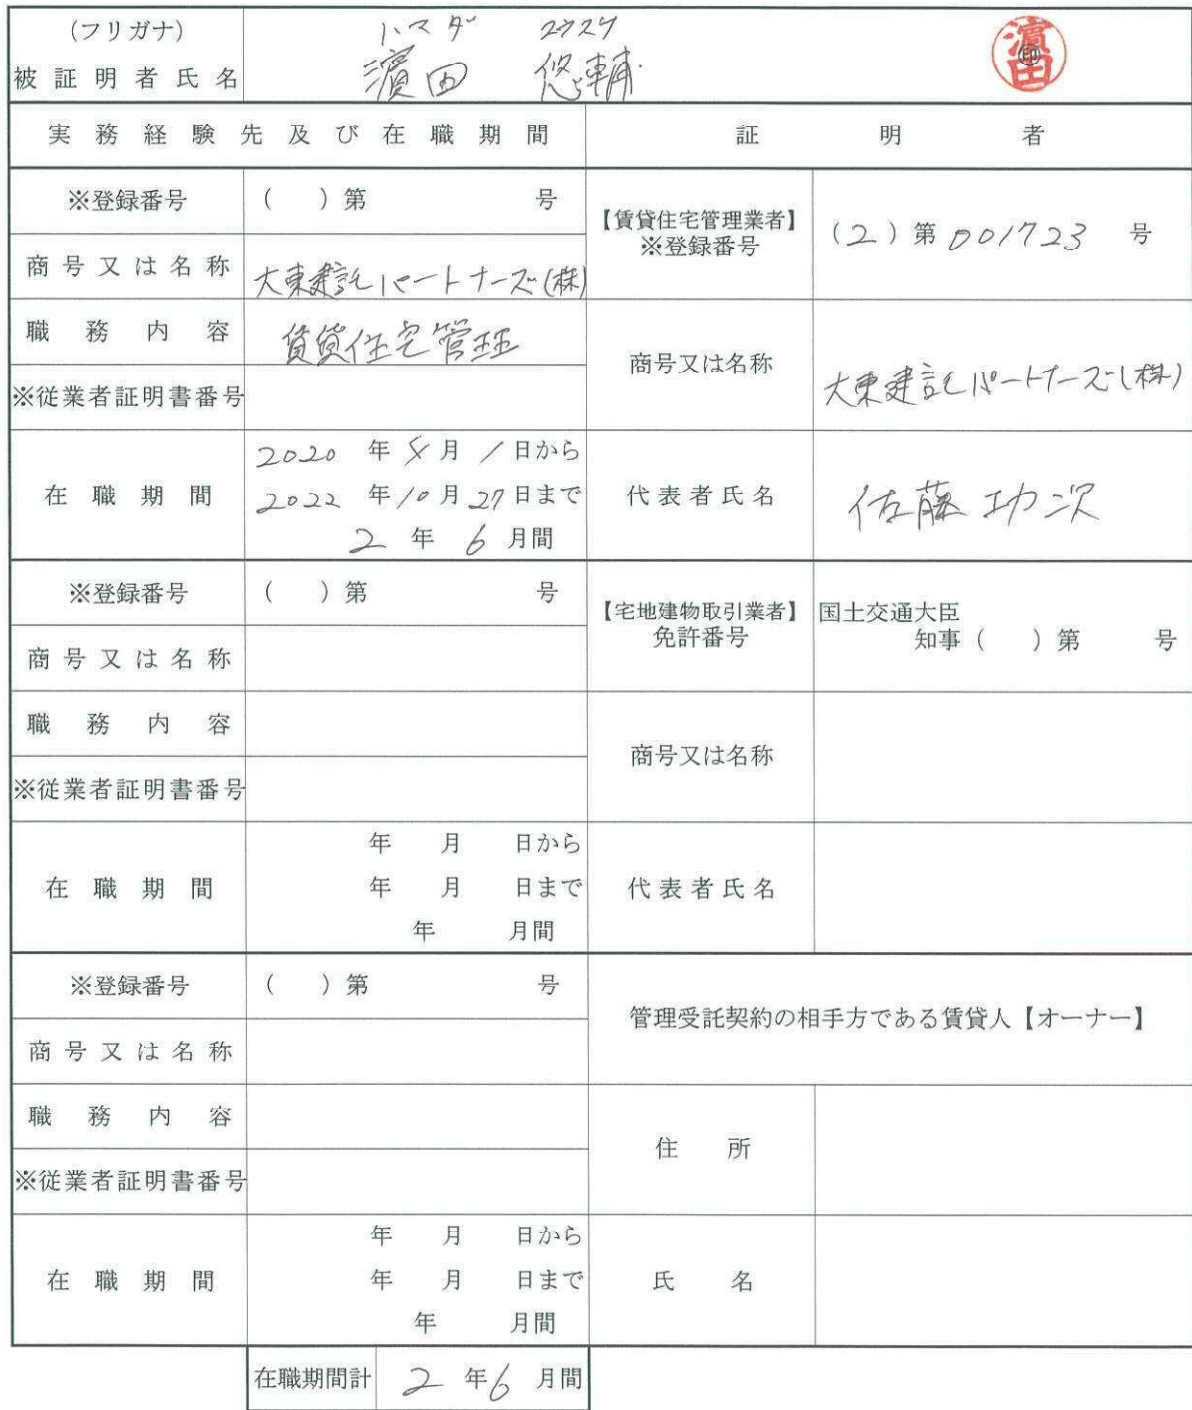 (フリガナ) ハマダ ユウスケ
被証明者氏名 濵田 悠輔 濵田 ㊞
実務経験先及び在職期間 証明者
※登録番号 ( )第 号
【賃貸住宅管理業者】
※登録番号 (2)第001723号
商号又は名称 大東建託パートナーズ(株)
職務内容 賃貸住宅管理
商号又は名称 大東建託パートナーズ(株)
※従業者証明書番号
在職期間
2020年 月1日から
2022年10月27日まで
2年6月間
代表者氏名 佐藤功次
※登録番号 ( )第 号
【宅地建物取引業者】
免許番号
国土交通大臣
知事( )第 号
商号又は名称
職務内容
商号又は名称
※従業者証明書番号
在職期間
年 月 日から
年 月 日まで
年 月間
代表者氏名
※登録番号 ( )第 号
管理受託契約の相手方である賃貸人【オーナー】
商号又は名称
職務内容
住所
※従業者証明書番号
在職期間
年 月 日から
年 月 日まで
年 月間
氏名
在職期間計 2年6月間